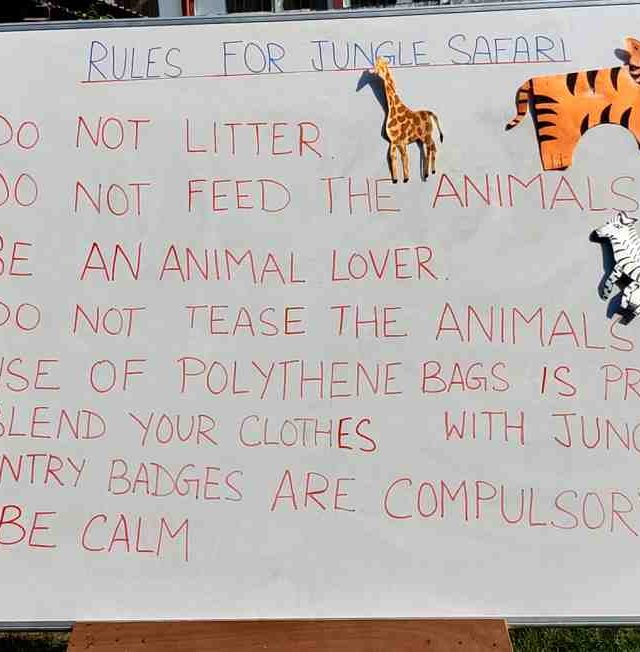 RULES FOR JUNGLE SAFARI
DO NOT LITTER.
DO NOT FEED THE ANIMALS
BE AN ANIMAL LOVER.
DO NOT TEASE THE ANIMALS
USE OF POLYTHENE BAGS IS PR
BLEND YOUR CLOTHES WITH JUNG
ENTRY BADGES ARE COMPULSOR
BE CALM